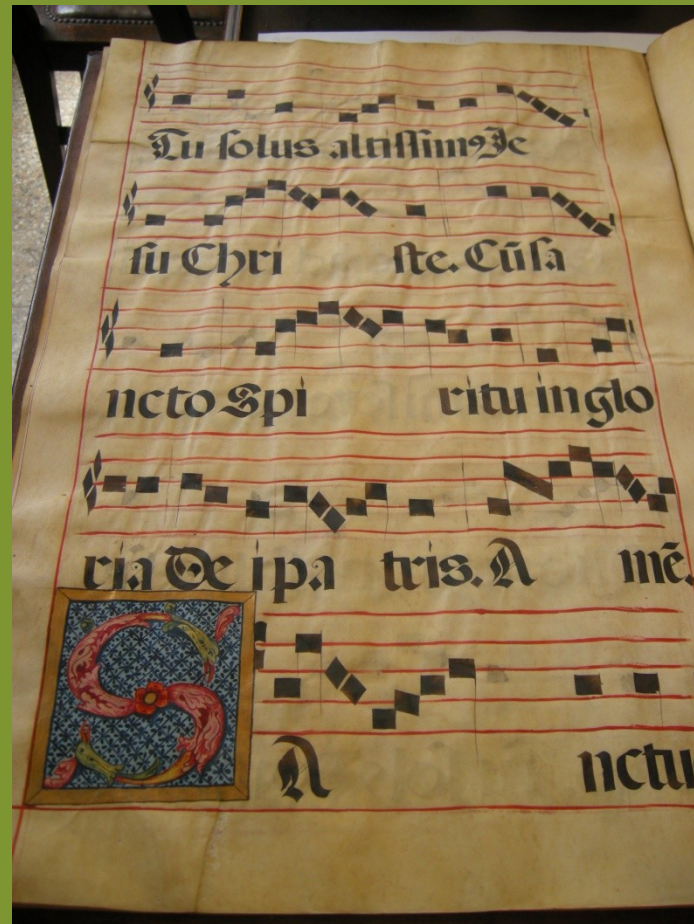 Tu ſolus altiſſimꝰ Je
ſu Chri ſte. Cũ ſa
ncto Spi ritu in glo
ria De i pa tris. A mẽ.
S A nctu